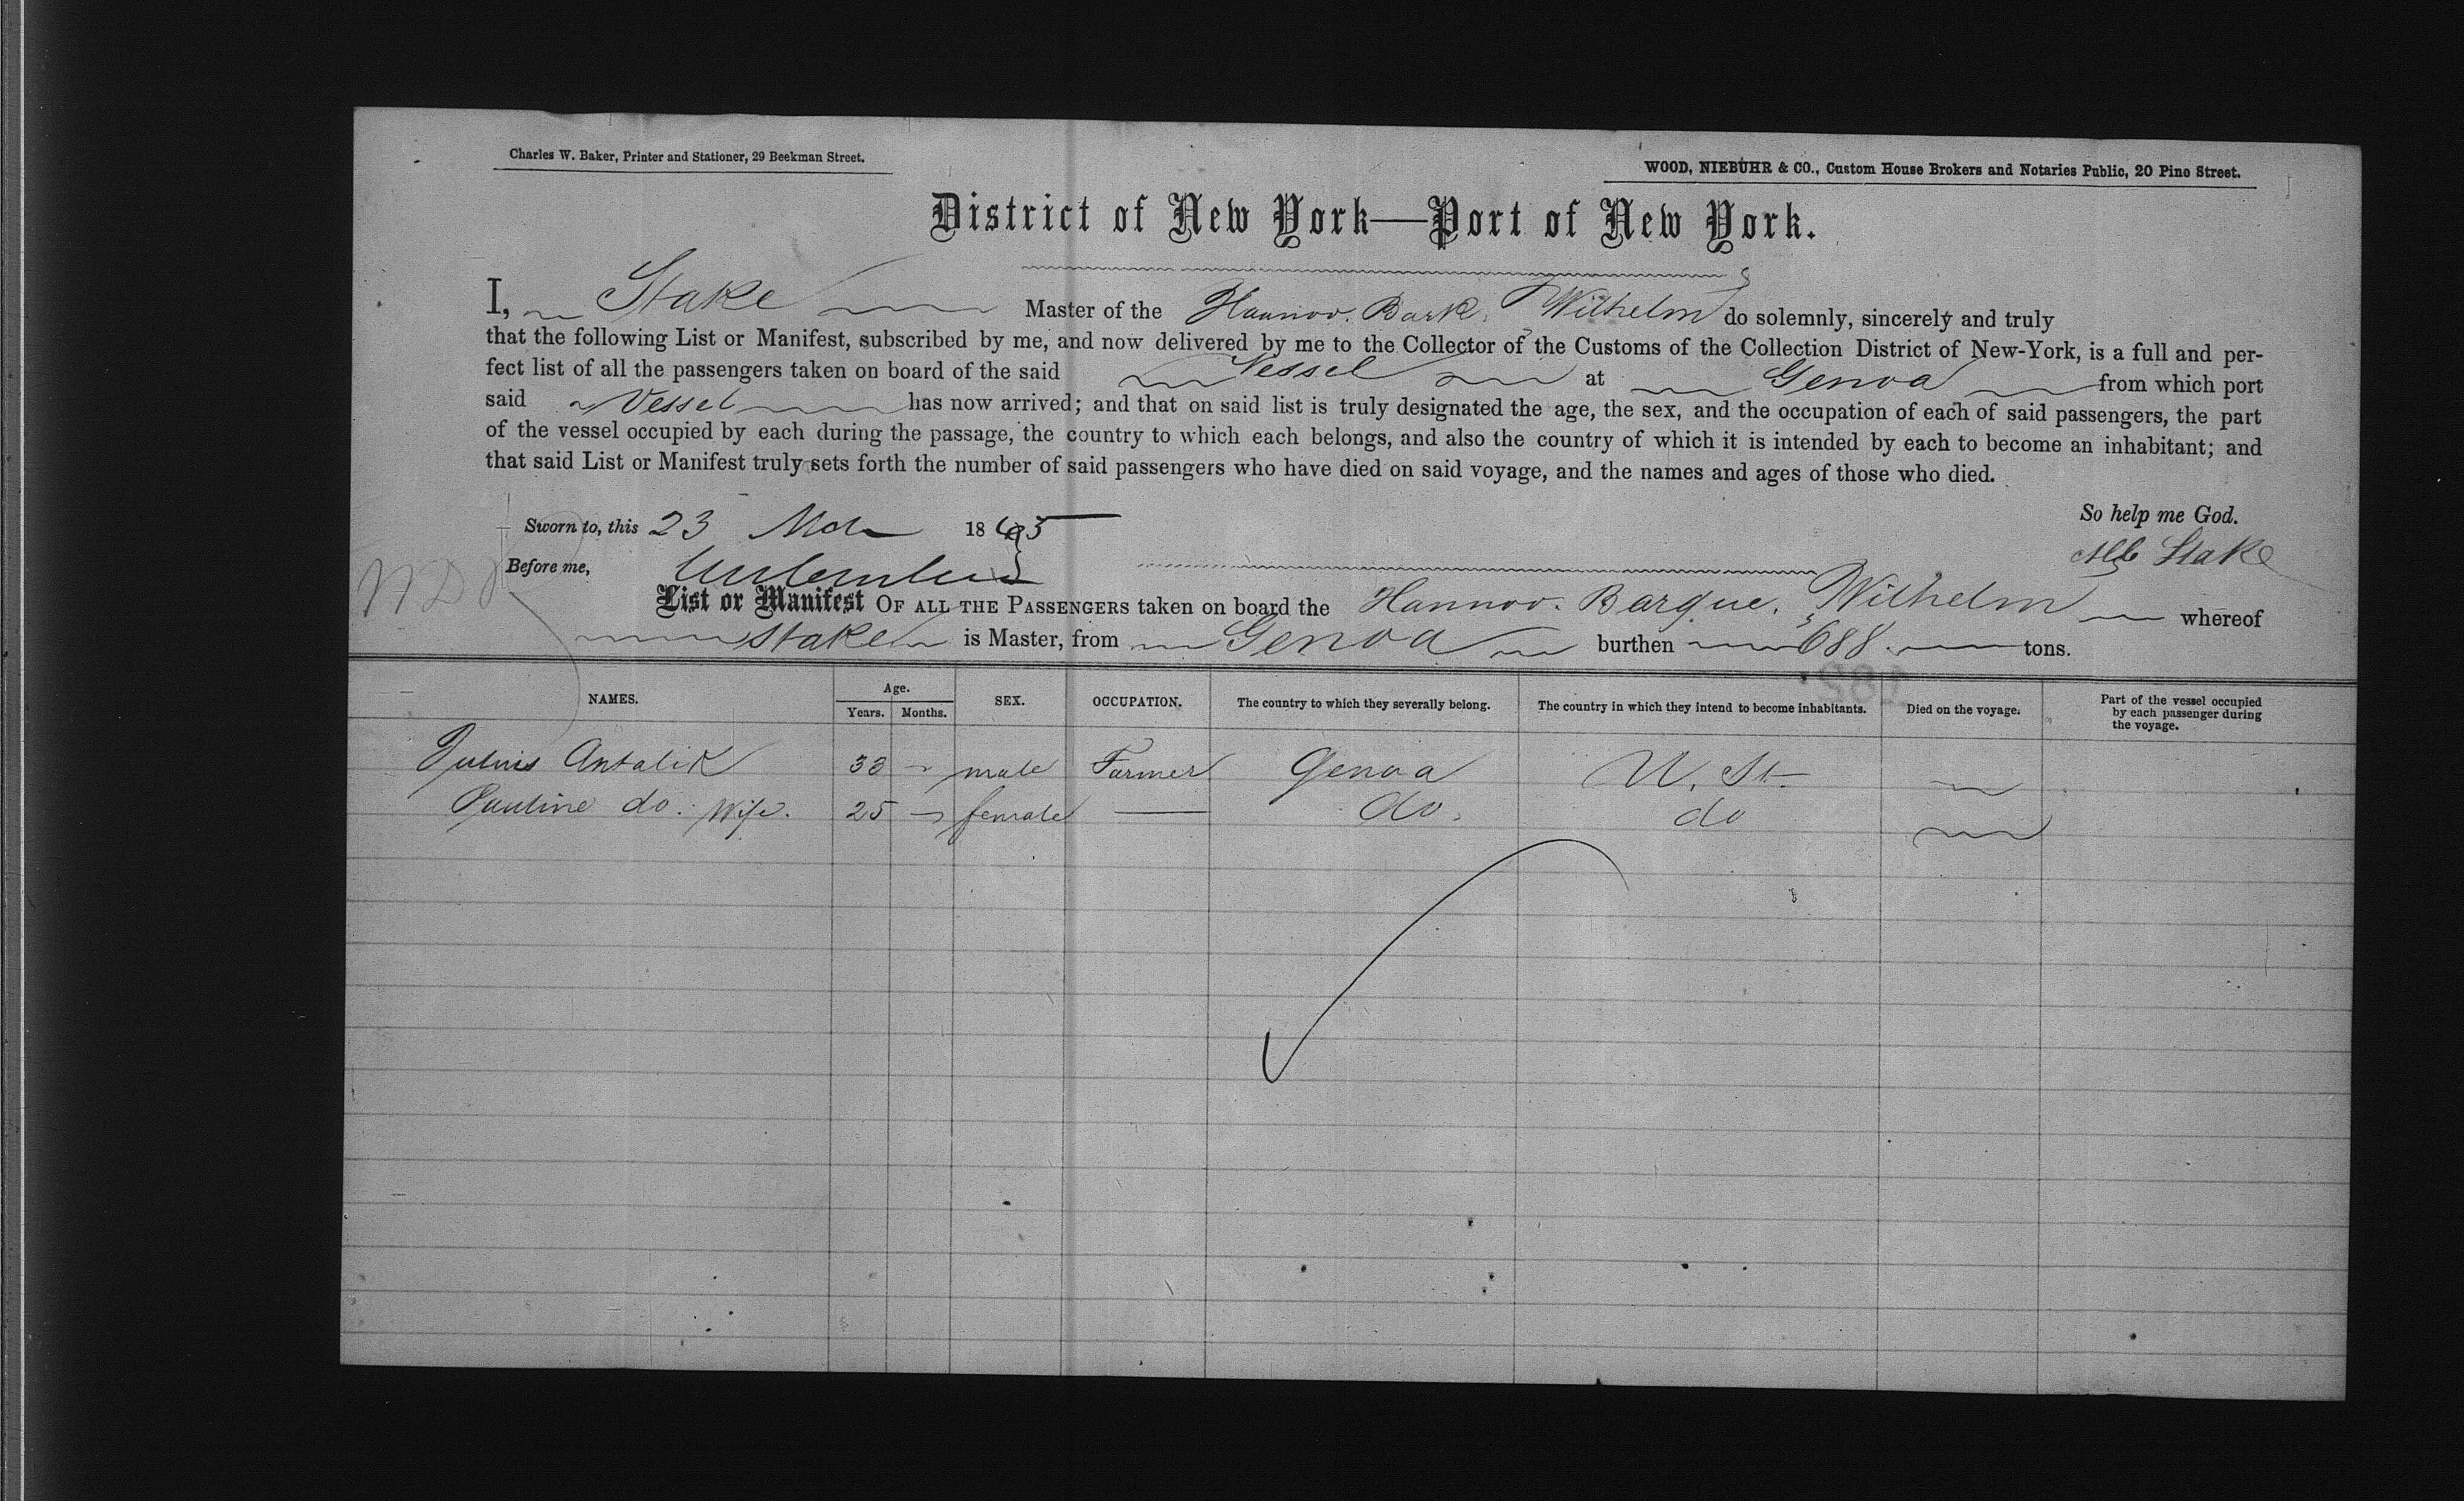 Charles W. Baker, Printer and Stationer, 29 Beekman Street.
WOOD, NIEBUHR & CO., Custom House Brokers and Notaries Public, 20 Pine Street.
District of New York—Port of New York.
I, Stake Master of the Hannov. Bark. Wilhelm do solemnly, sincerely and truly
that the following List or Manifest, subscribed by me, and now delivered by me to the Collector of the Customs of the Collection District of New-York, is a full and per-
fect list of all the passengers taken on board of the said Vessel at Genoa from which port
said Vessel has now arrived; and that on said list is truly designated the age, the sex, and the occupation of each of said passengers, the part
of the vessel occupied by each during the passage, the country to which each belongs, and also the country of which it is intended by each to become an inhabitant; and
that said List or Manifest truly sets forth the number of said passengers who have died on said voyage, and the names and ages of those who died.
So help me God.
Sworn to, this 23 Mch 1865
Stake
Before me,
List or Manifest OF ALL THE PASSENGERS taken on board the Hannov. Barque. Wilhelm whereof
Stake is Master, from Genoa burthen 688 tons.
NAMES. Age. Years. Months. SEX. OCCUPATION. The country to which they severally belong. The country in which they intend to become inhabitants. Died on the voyage. Part of the vessel occupied by each passenger during the voyage.
Julius Antalik 33 male Farmer Genoa U. St.
Pauline do. Wife. 25 female do. do